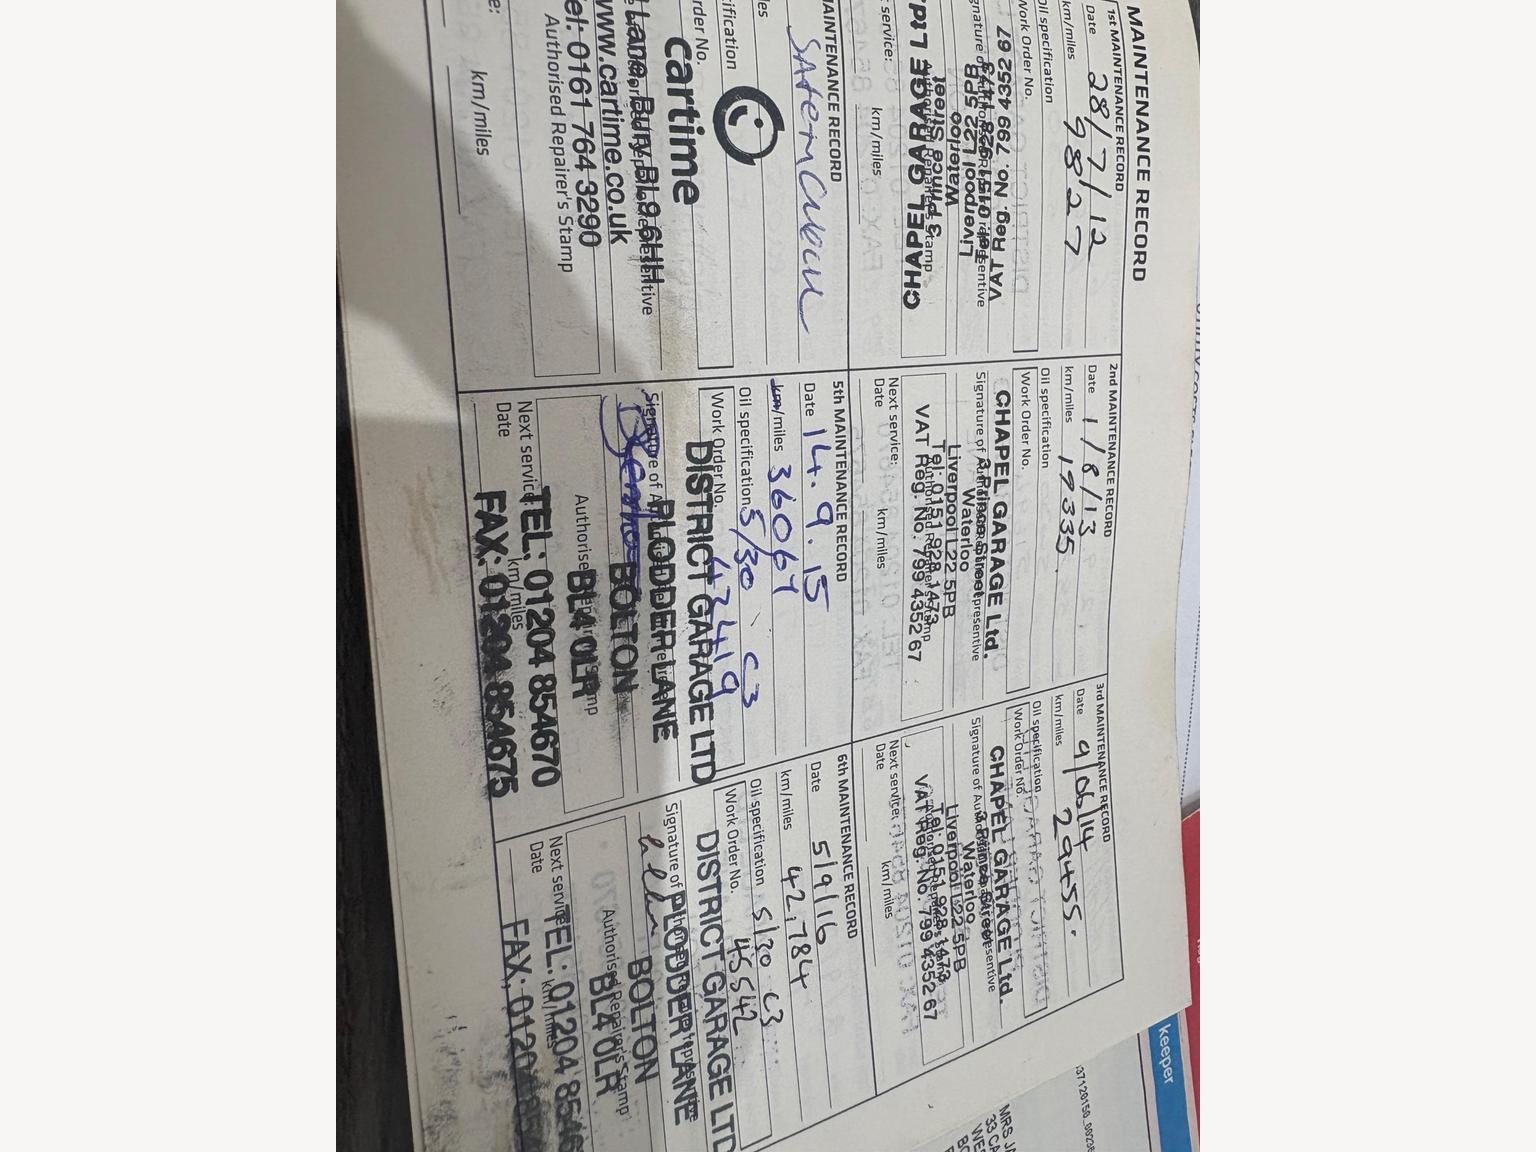 MAINTENANCE RECORD
1st MAINTENANCE RECORD
Date 28/7/12
km/miles 9827
Oil specification
Work Order No.
VAT Reg. No. 799 4352 67
Tel: 0151 928 1473
Liverpool L22 5PB
Waterloo
3 Prince Street
CHAPEL GARAGE Ltd.
km/miles
2nd MAINTENANCE RECORD
Date 1/8/13
km/miles 19335.
Oil specification
Work Order No.
CHAPEL GARAGE Ltd.
Signature of Authorised Representative
3 Prince Street
Waterloo
Liverpool L22 5PB
Tel: 0151 928 1473
Authorised Repairer's Stamp
VAT Reg. No. 799 4352 67
Next service:
Date km/miles
3rd MAINTENANCE RECORD
Date 9/06/14
km/miles 29455.
Oil specification
Work Order No.
CHAPEL GARAGE Ltd.
Signature of Authorised Representative
3 Prince Street
Waterloo
Liverpool L22 5PB
Tel: 0151 928 1473
VAT Reg. No. 799 4352 67
Next service:
Date km/miles
MAINTENANCE RECORD
cartime
Lane, Bury BL9 6HH
www.cartime.co.uk
Tel: 0161 764 3290
Authorised Repairer's Stamp
km/miles
5th MAINTENANCE RECORD
Date 14.9.15
km/miles 36064
Oil specification 5/30 C3
Work Order No. 42419
DISTRICT GARAGE LTD
Signature of
PLODDER LANE
BOLTON
BL4 0LR
TEL: 01204 854670
Next service
Date km/miles
FAX: 01204 854675
6th MAINTENANCE RECORD
Date 5/9/16
km/miles 42,784
Oil specification 5/30 C3
Work Order No. 45542
DISTRICT GARAGE LTD
Signature of
PLODDER LANE
BOLTON
BL4 0LR
Authorised Repairer's Stamp
TEL: 01204 8546
Next service
Date km/miles
FAX: 01204
keeper
MRS JA
33 CA
WES
BO